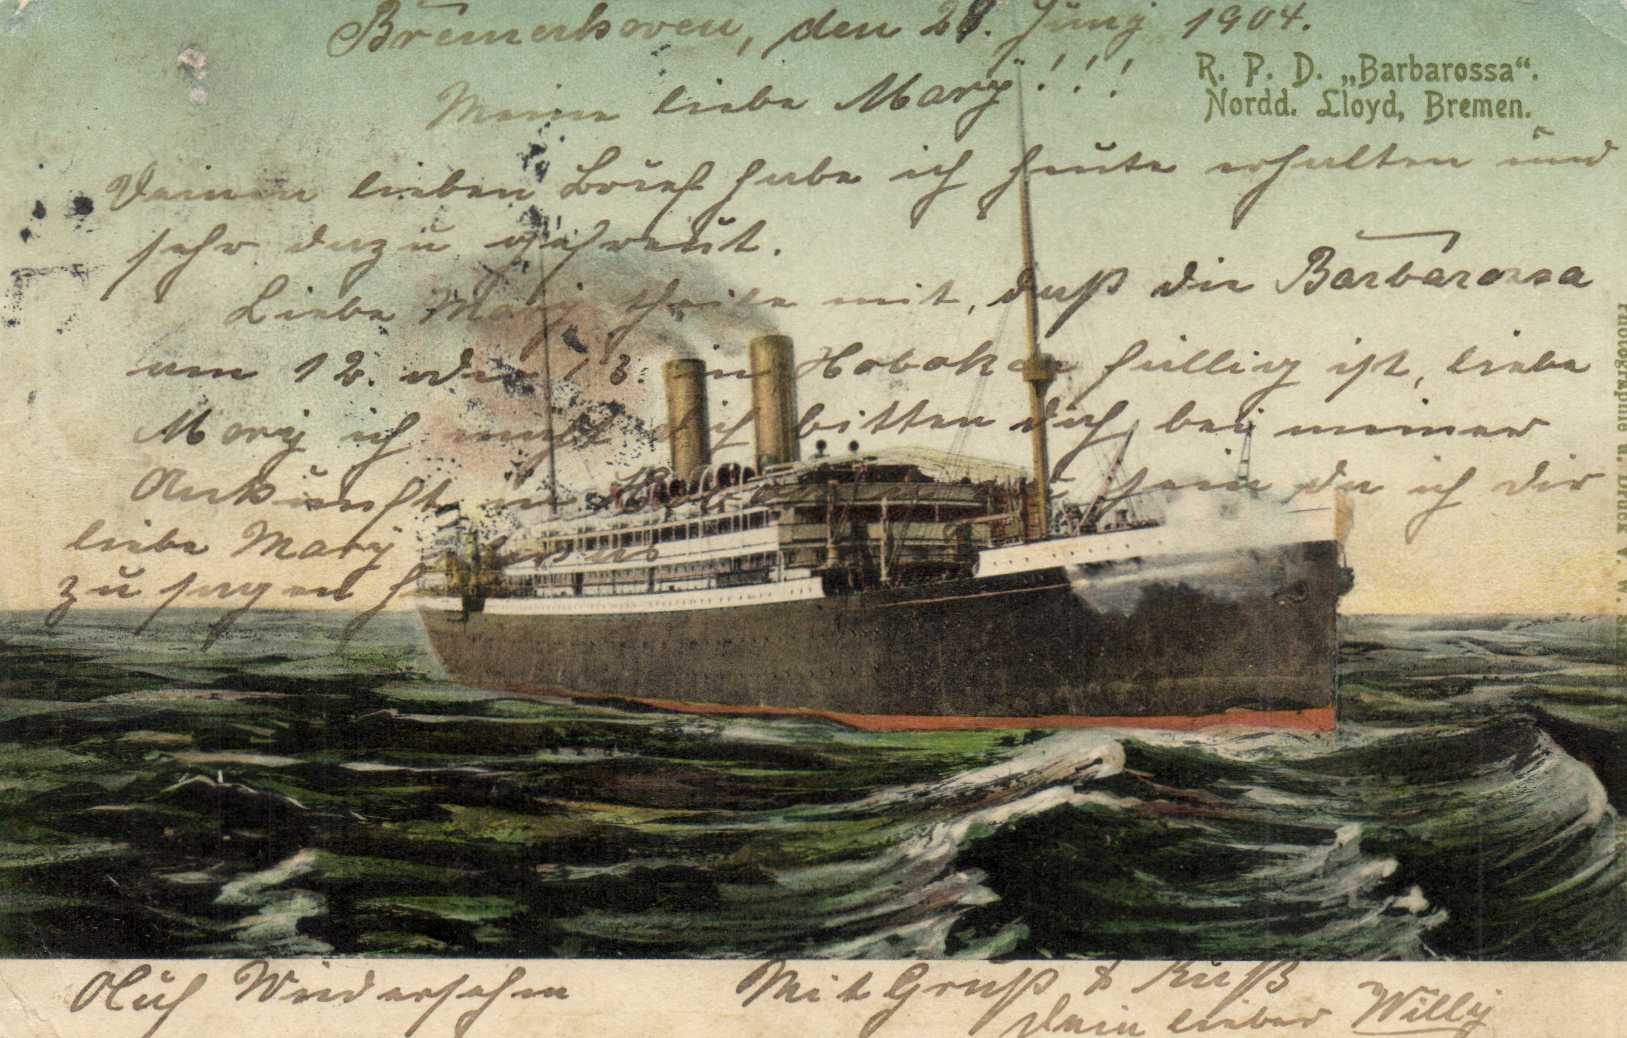 Bremerhaven, den 28. Juny 1904.
R. P. D. „Barbarossa“.
Nordd. Lloyd, Bremen.
Meine liebe Mary!!!
Deinen lieben Brief habe ich heute erhalten und
sehr dazu gefreut.
Liebe Mary theile mit, daß die Barbarossa
am 12. oder 13. in Hoboken fällig ist, liebe
Mary ich muß dich bitten dich bei meiner
Ankunft in Hoboken zu sein da ich dir
liebe Mary
zu sagen
Auf Wiedersehen
Mit Gruß & Kuß
Dein lieber Willy
Photographie u. Druck v. W.